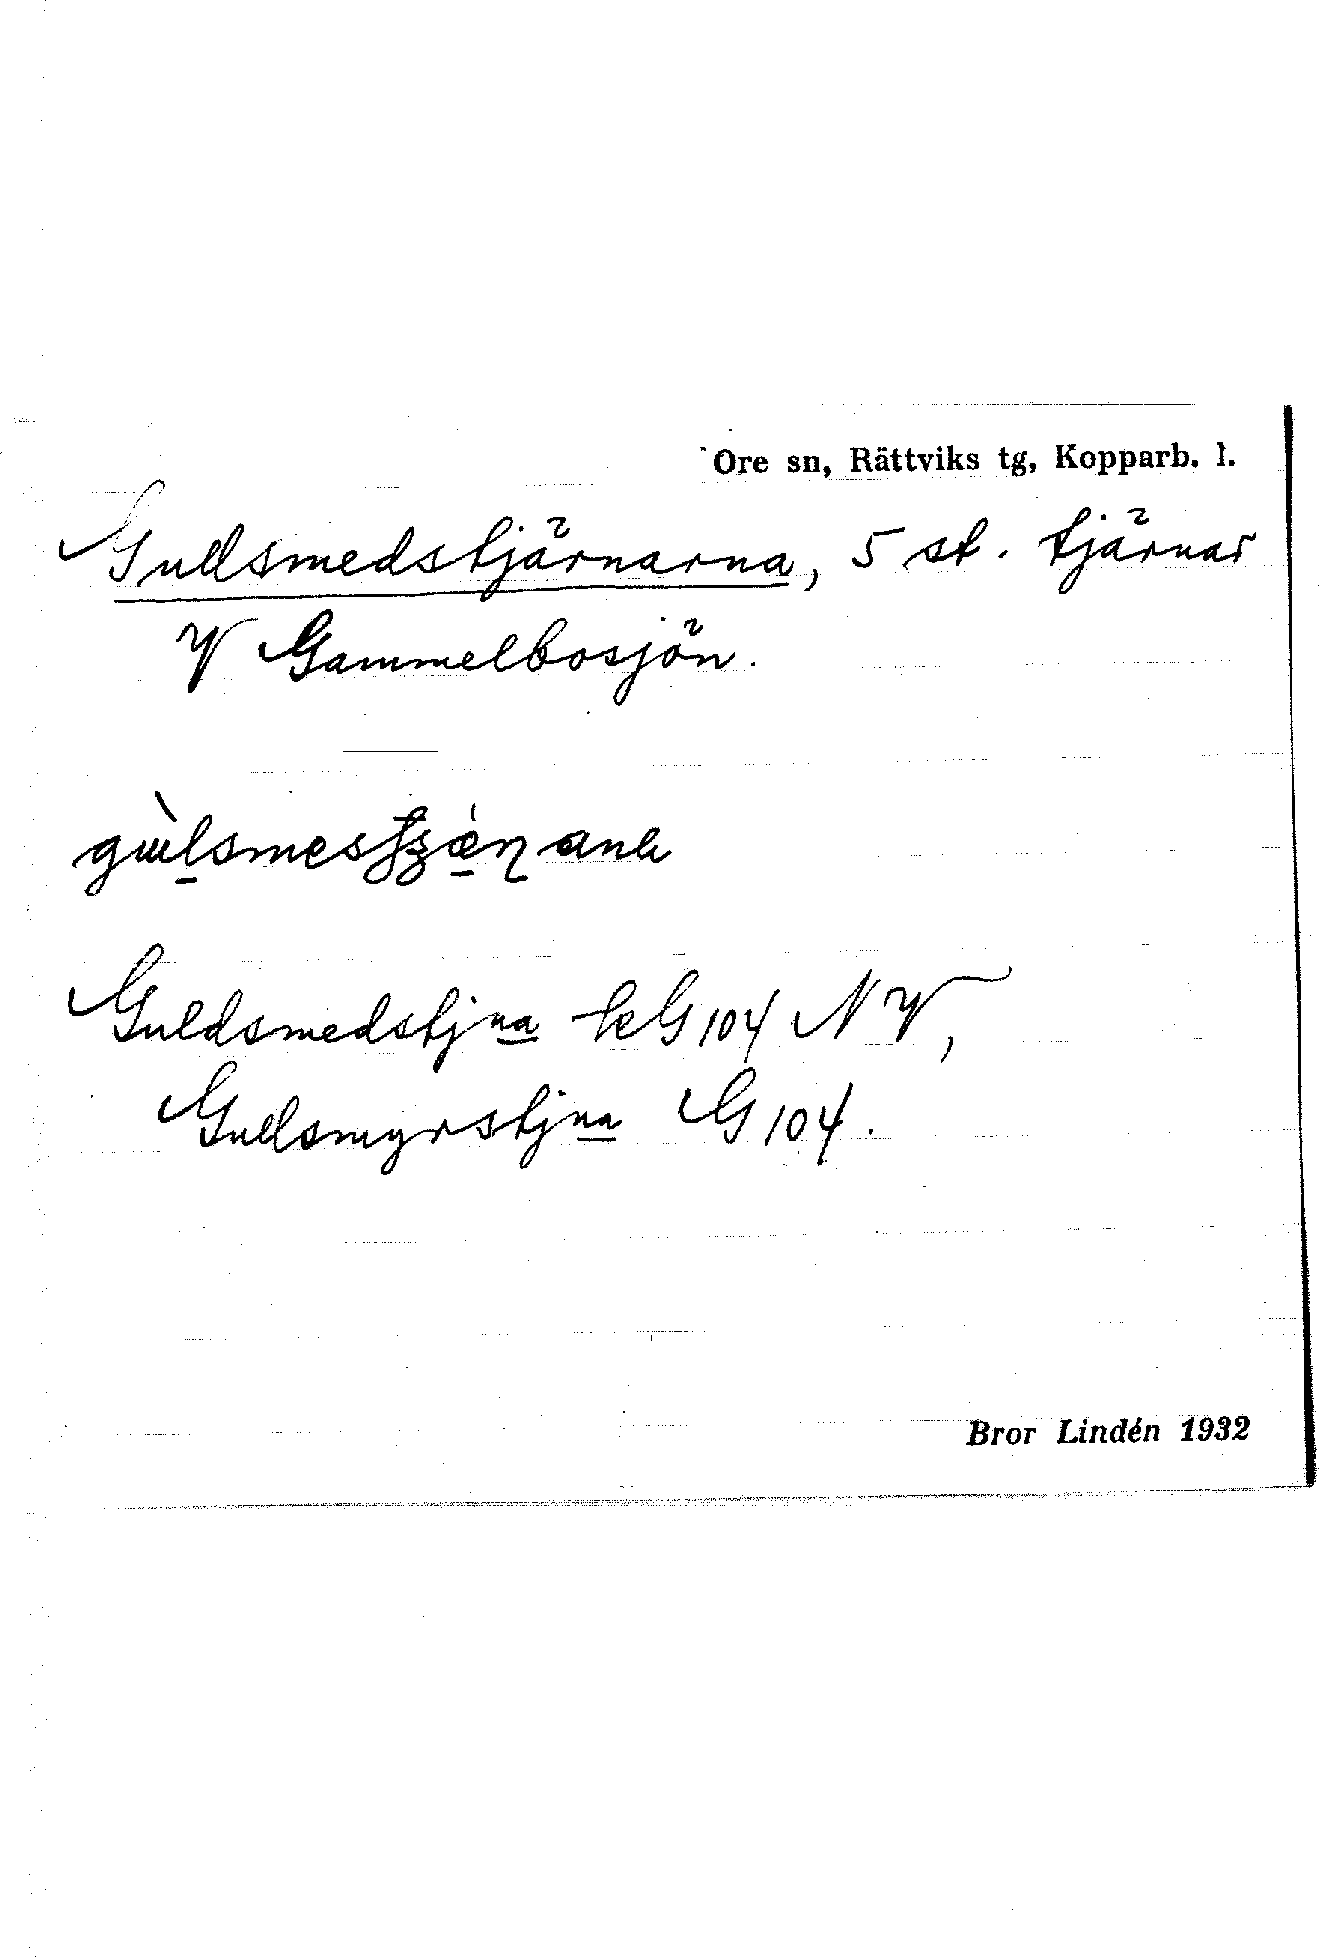 Ore sn, Rättviks tg, Kopparb. l.
Gullsmedstjärnarna, 5 st. tjärnar
V Gammelbosjön.
Guldsmedstjna kG 104 NV,
Gullsmyrstjna G 104.
Bror Lindén 1932